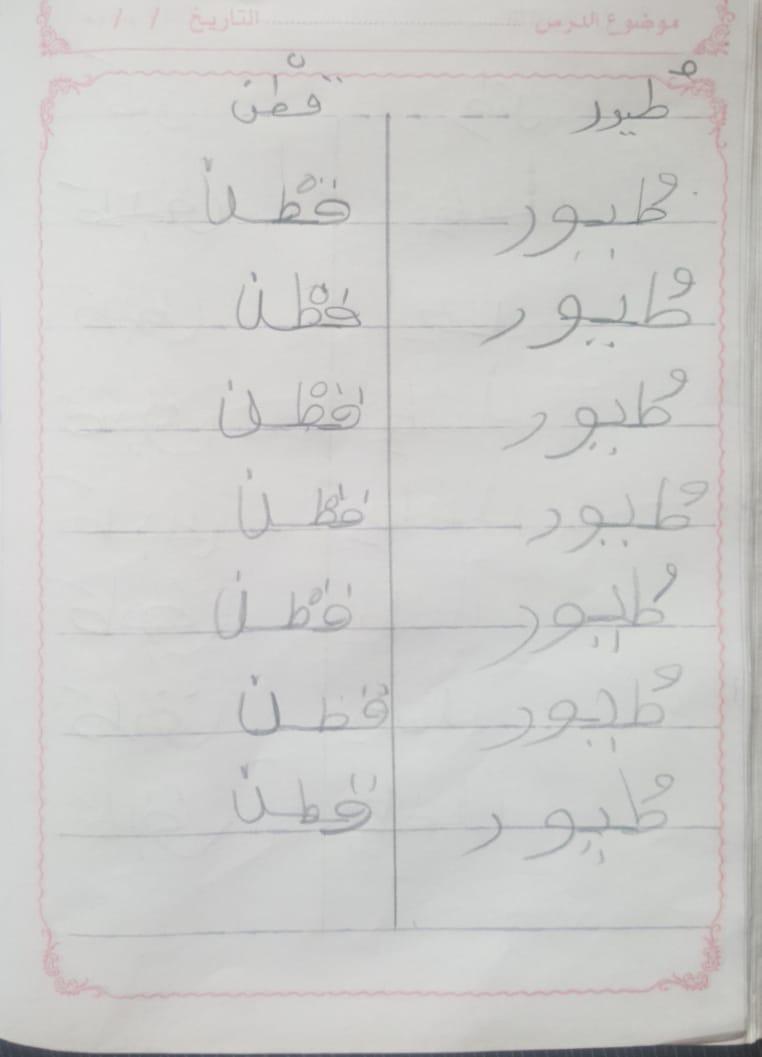 موضوع الدرس ........................ التاريخ / /
طيور قطن
طُيور قطْن
طُيور قطْن
طُيور قطْن
طُيور قطن
طُيور قطْن
طُيور قطن
طُيور قطن